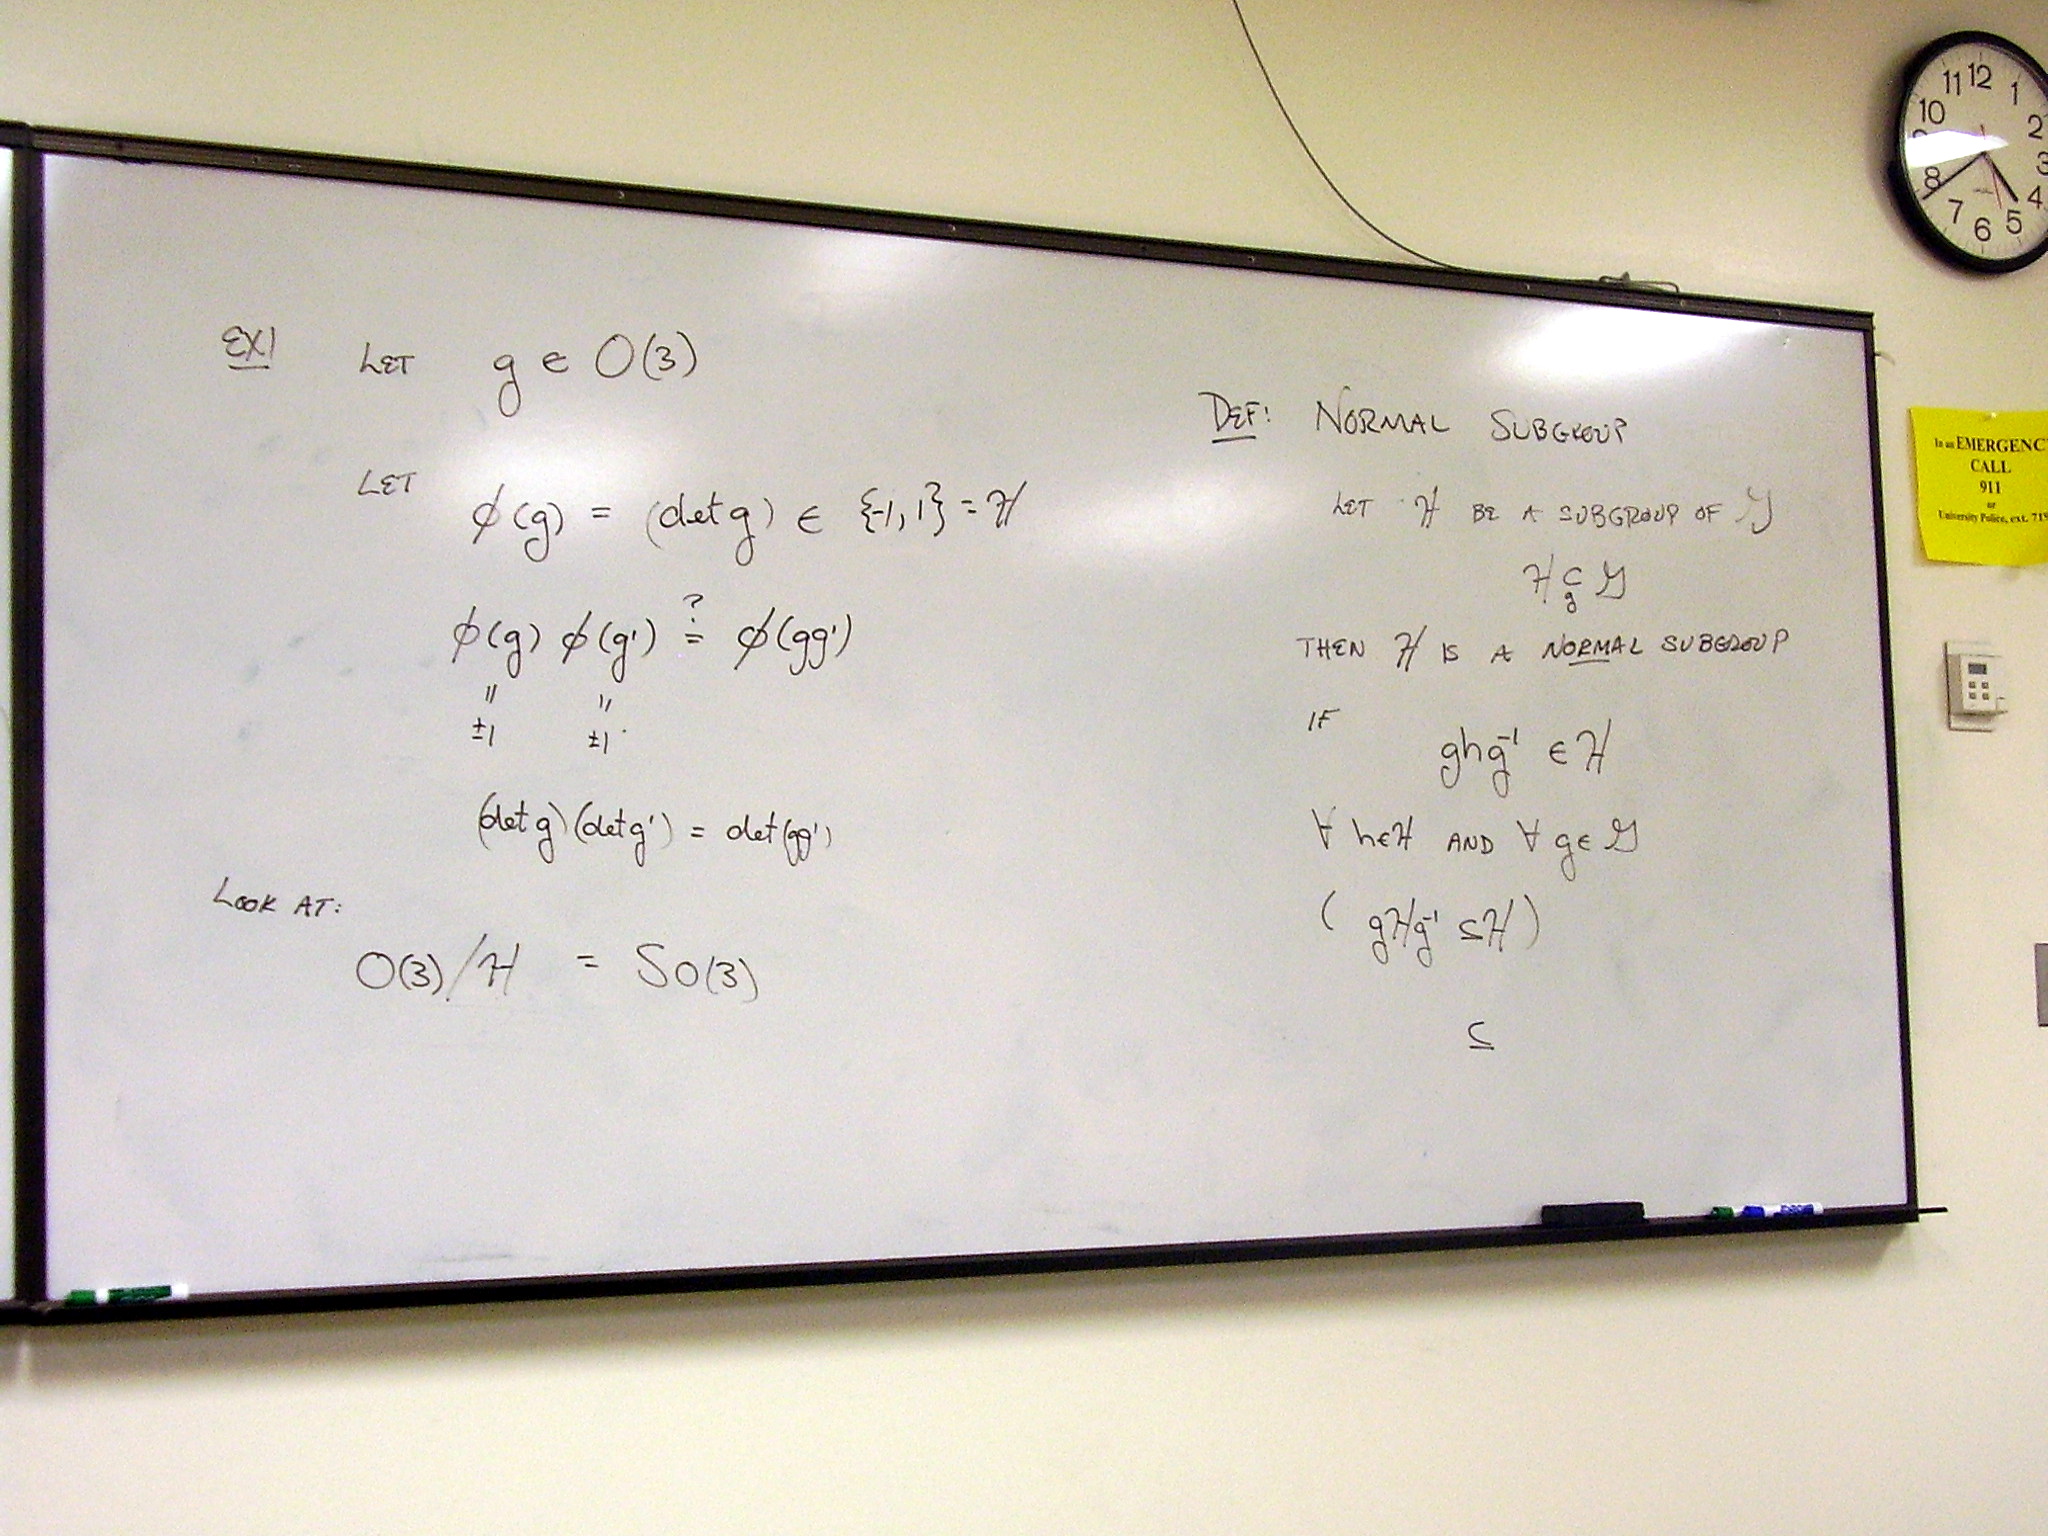 EX1 LET g ∈ O(3)
LET φ(g) = (det g) ∈ {-1, 1} = H
φ(g) φ(g') ?= φ(gg')
" "
±1 ±1
(det g)(det g') = det(gg')
LOOK AT:
O(3)/H = SO(3)
DEF: NORMAL SUBGROUP
LET H BE A SUBGROUP OF G
H ⊂g G
THEN H IS A NORMAL SUBGROUP
IF ghg⁻¹ ∈ H
∀ h∈H AND ∀ g∈G
( gHg⁻¹ ⊆ H )
⊆
11 12 1
10 2
3
8 4
7 6 5
In an EMERGENC
CALL
911
or
University Police, ext. 719